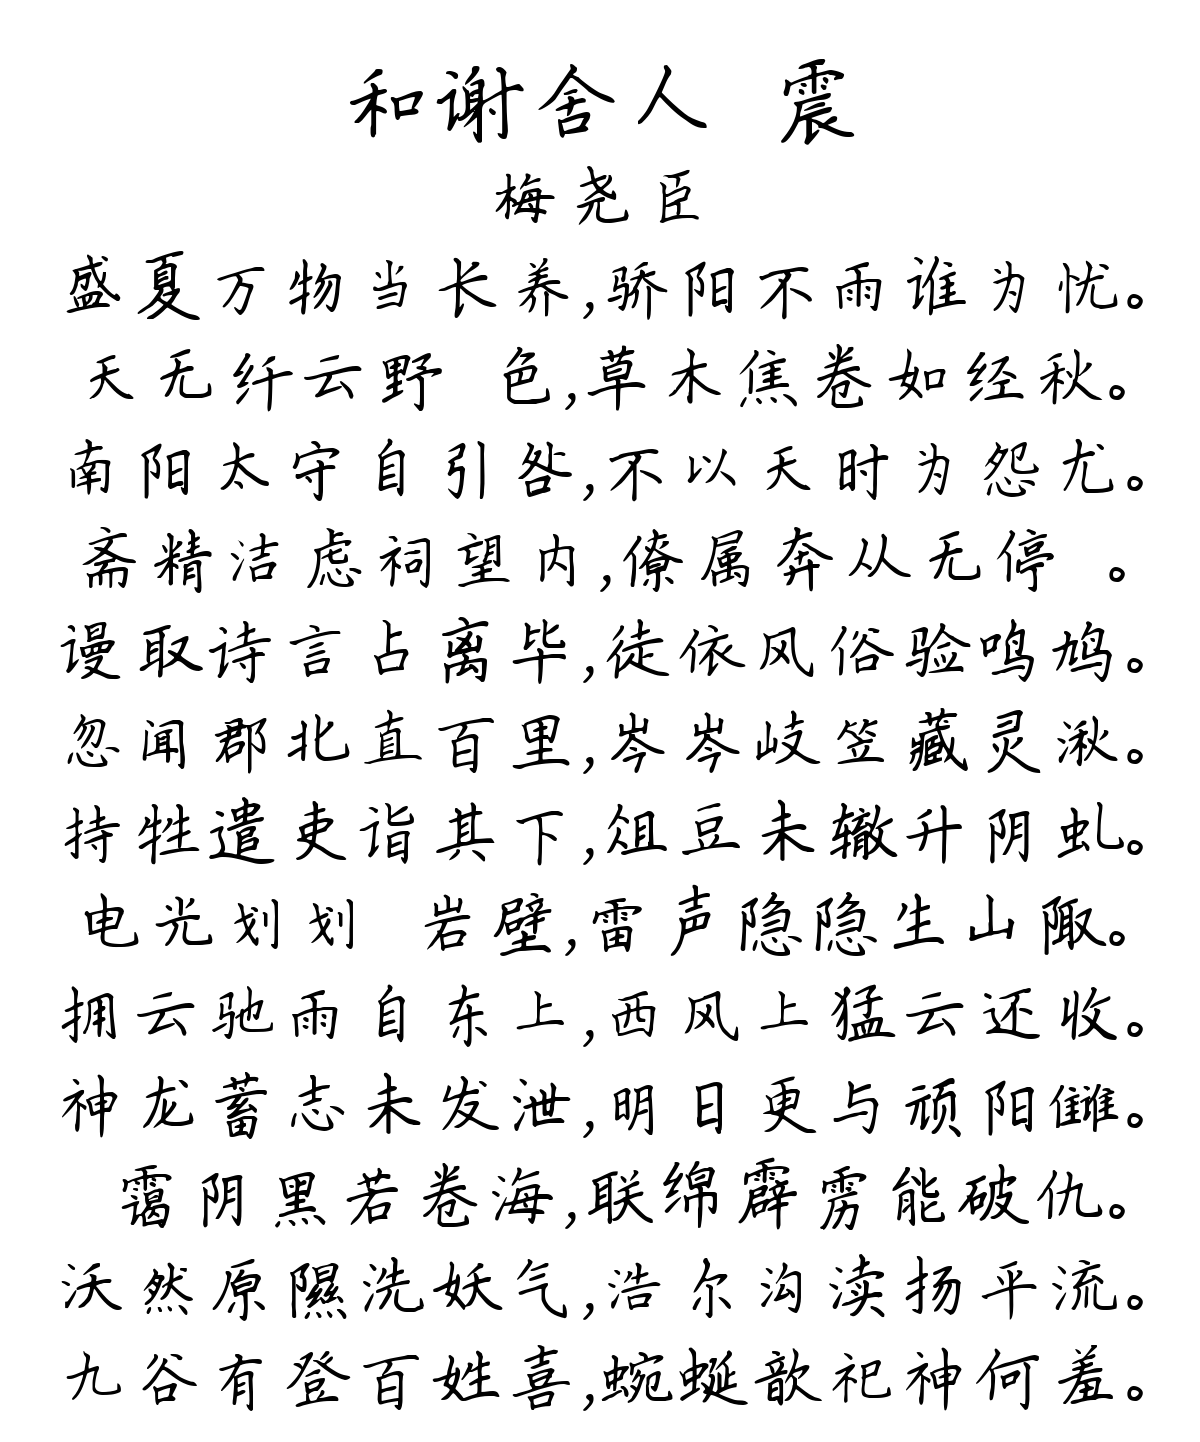 和谢舍人 震
梅尧臣
盛夏万物当长养,骄阳不雨谁为忧。
天无纤云野 色,草木焦卷如经秋。
南阳太守自引咎,不以天时为怨尤。
斋精洁虑祠望内,僚属奔从无停 。
谩取诗言占离毕,徒依风俗验鸣鸠。
忽闻郡北直百里,岑岑岐笠藏灵湫。
持牲遣吏诣其下,俎豆未辙升阴虬。
电光划划 岩壁,雷声隐隐生山陬。
拥云驰雨自东上,西风上猛云还收。
神龙蓄志未发泄,明日更与顽阳雠。
霭阴黑若卷海,联绵霹雳能破仇。
沃然原隰洗妖气,浩尔沟渎扬平流。
九谷有登百姓喜,蜿蜒歆祀神何羞。